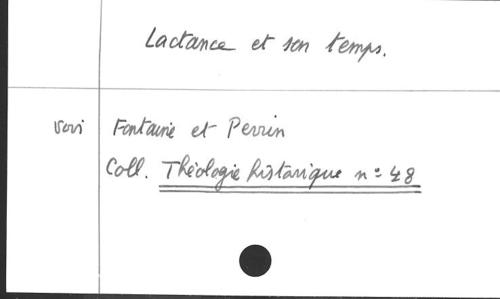 Lactance et son temps.
voir Fontaine et Perrin
Coll. Théologie historique n° 48